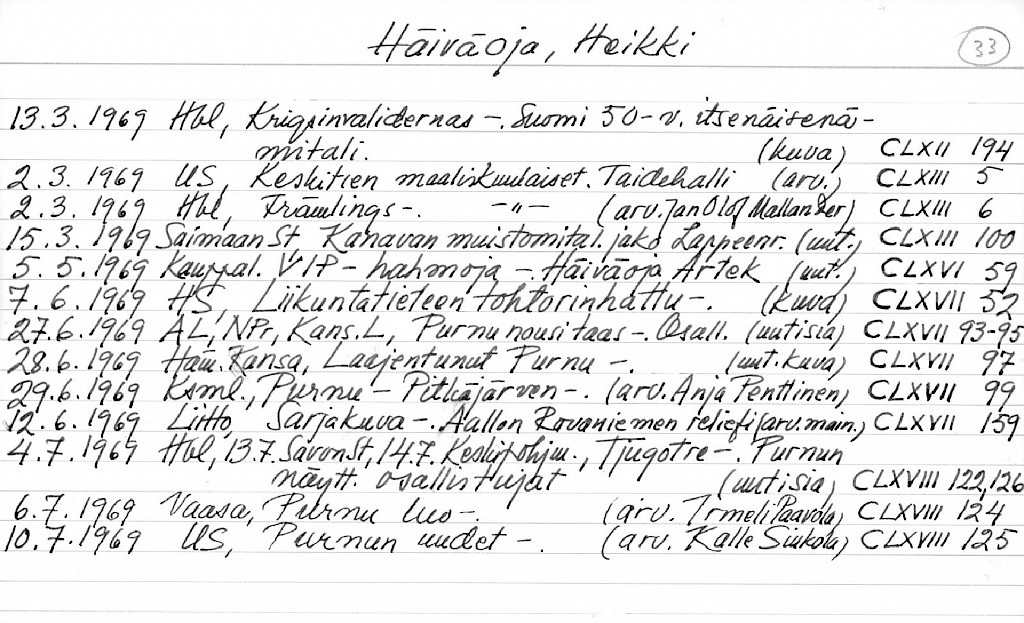 Häiväoja, Heikki 33
13.3.1969 Hbl, Krigsinvalidernas -. Suomi 50-v. itsenäisenä-
mitali. (kuva) CLXII 194
2.3.1969 US, Keskitien maaliskuulaiset. Taidehalli (arv.) CLXIII 5
2.3.1969 Hbl, Främlings-. -"- (arv. Jan Olof Mallander) CLXIII 6
15.3.1969 Saimaan St, Kanavan muistomital. jako Lappeenr. (uut.) CLXIII 100
5.5.1969 Kauppal. VIP-hahmoja -. Häiväoja Artek (uut.) CLXVI 59
7.6.1969 HS, Liikuntatieteen tohtorinhattu-. (kuva) CLXVII 52
27.6.1969 AL, NPr, Kans.L, Purnu nousi taas-. Osall. (uutisia) CLXVII 93-95
28.6.1969 Häm. Kansa, Laajentunut Purnu -. (uut. kuva) CLXVII 97
29.6.1969 Ksml., Purnu - Pitkäjärven -. (arv. Anja Penttinen) CLXVII 99
12.6.1969 Liitto, Sarjakuva-. Aallon Rovaniemen reliefi (arv. main.) CLXVII 159
4.7.1969 Hbl, 13.7. Savon St, 14.7. Keskipohjm., Tjugotre-. Purnun
näytt. osallistujat (uutisia) CLXVIII 122,126
6.7.1969 Vaasa, Purnu luo-. (arv. Irmeli Paavola) CLXVIII 124
10.7.1969 US, Purnun uudet -. (arv. Kalle Siukola) CLXVIII 125